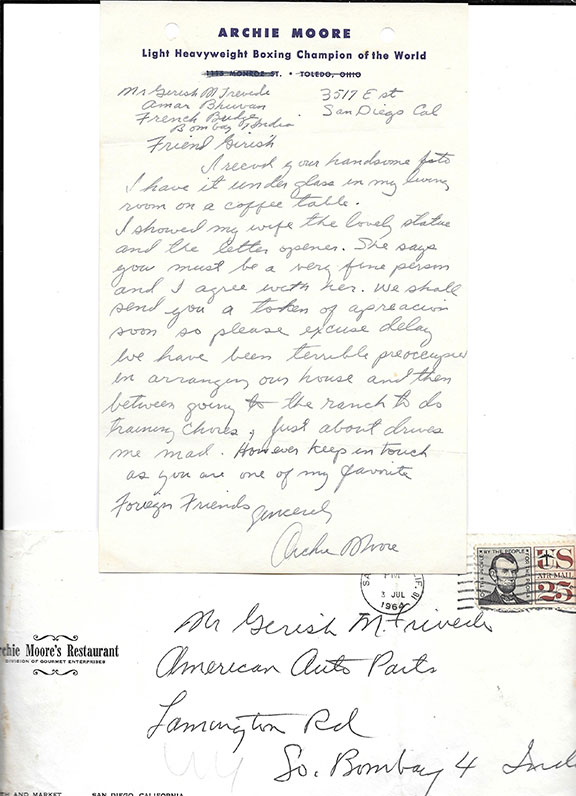 ARCHIE MOORE
Light Heavyweight Boxing Champion of the World
1118 MONROE ST. • TOLEDO, OHIO
Mr Gerish M Trevedi
3517 E st
Amar Bhuvan
San Diego Cal
French Bridge
Bombay 7 India
Friend Gerish
I recvd your handsome foto
I have it under glass in my living
room on a coffee table.
I showed my wife the lovely statue
and the letter opener. She says
you must be a very fine person
and I agree with her. We shall
send you a token of apreacion
soon so please excuse delay
We have been terrible preoccupied
in arranging our house and then
between going to the ranch to do
training chores, just about drives
me mad. However keep in touch
as you are one of my favorite
Foreign Friends
Sincerely
Archie Moore
PM
3 JUL
1964
CALIF.
OF THE PEOPLE
BY THE PEOPLE
FOR THE PEOPLE
US
AIR MAIL
25
rchie Moore's Restaurant
DIVISION OF GOURMET ENTERPRISES
Mr Gerish M. Trivedi
American Auto Parts
Lamington Rd
So. Bombay 4 Indi
TH AND MARKET SAN DIEGO, CALIFORNIA